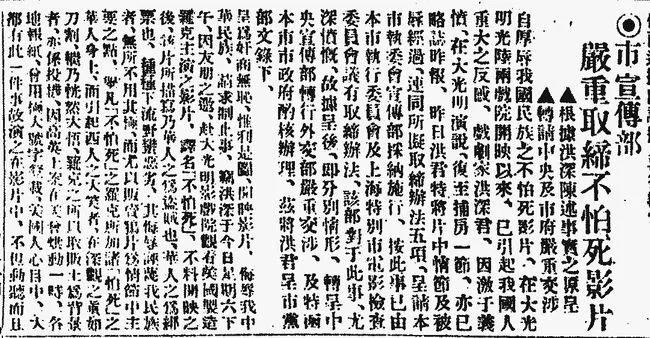 ◉市宣傳部
嚴重取締不怕死影片
▲根據洪深陳述事實之原呈
▲轉請中央及市府嚴重交涉
自厚辱我國民族之不怕死影片、在大光
明光陸兩戲院開映以來、已引起我國人
重大之反感、戲劇家洪深君、因激于義
憤、在大光明演說、復至捕房一節、亦已
略誌昨報、昨日洪君特將片中情節及被
辱經過、連同所擬取締辦法五項、呈請本
市執委會宣傳部採納施行、按此事已由
本市執行委員會及上海特別市電影檢查
委員會議有取締辦法、該部對于此事、尤
其憤慨、故據呈後、即分別情形、轉呈中
央宣傳部轉行外交部嚴重交涉、及特函
本市市政府酌核辦理、茲將洪君呈市黨
部文錄下、
呈為奸商無恥、惟利是圖、開映影片、侮辱我中
華民族、請求制止事、竊洪深于今日星期六下
午、因友朋之邀、赴大光明影戲院觀看美國製造
羅克主演之影片、譯名「不怕死」、不料開映之
後、該片所描寫乃華人之為盜賊也、華人之為綁
票也、種種下流野蠻惡劣、其侮辱誣衊我民族
者、無所不用其極、而尤以販賣鴉片為情節中主
要之點、舉凡「不怕死」之羅克所加諸「怕死」之
華人身上、而引起西人之大笑者、在深觀之
刀割、乃恍然大悟、羅克之所以取販土為背景
者、亦係投機、因高英土案在美曾烘動一時、各
地報紙、曾用極大號字登載、美國人心目中、大
都有此一件事、故演之在影片中、不但動聽而且